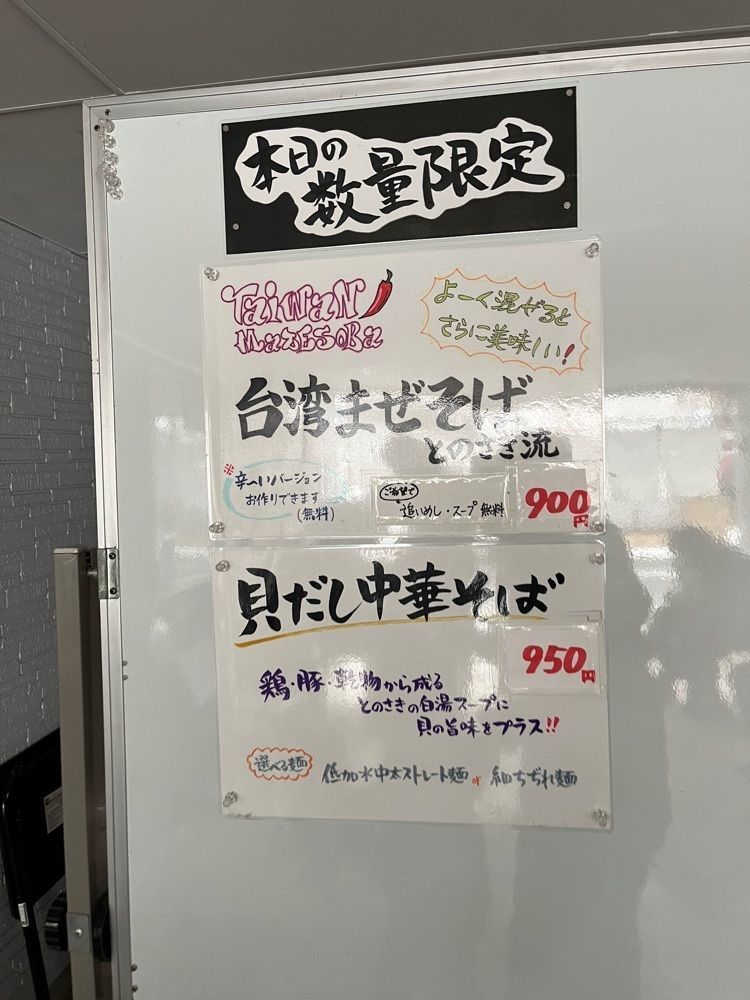 本日の
数量限定
TaiWaN
MaZESoBa
よーく混ぜると
さらに美味しい!
台湾まぜそば
とのさき流
※
辛〜いバージョン
お作りできます
(無料)
ご希望で
追いめし・スープ無料
900円
貝だし中華そば
950円
鶏・豚・乾物から成る
とのさきの白湯スープに
貝の旨味をプラス!!
選べる麺
低加水中太ストレート麺 or 細ちぢれ麺